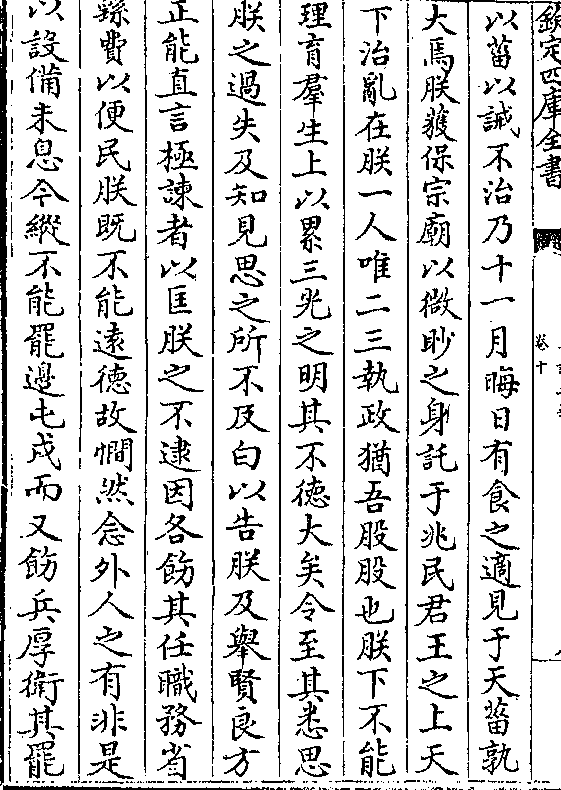 欽定四庫全書
卷十
以菑以誡不治乃十一月晦日有食之適見于天菑孰
大焉朕獲保宗廟以微眇之身託于兆民君王之上天
下治亂在朕一人唯二三執政猶吾股股也朕下不能
理育羣生上以累三光之明其不德大矣令至其悉思
朕之過失及知見思之所不及匄以告朕及舉賢良方
正能直言極諫者以匡朕之不逮因各飭其任職務省
繇費以便民朕既不能遠德故憪然念外人之有非是
以設備未息今縱不能罷邊屯戍而又飭兵厚衛其罷